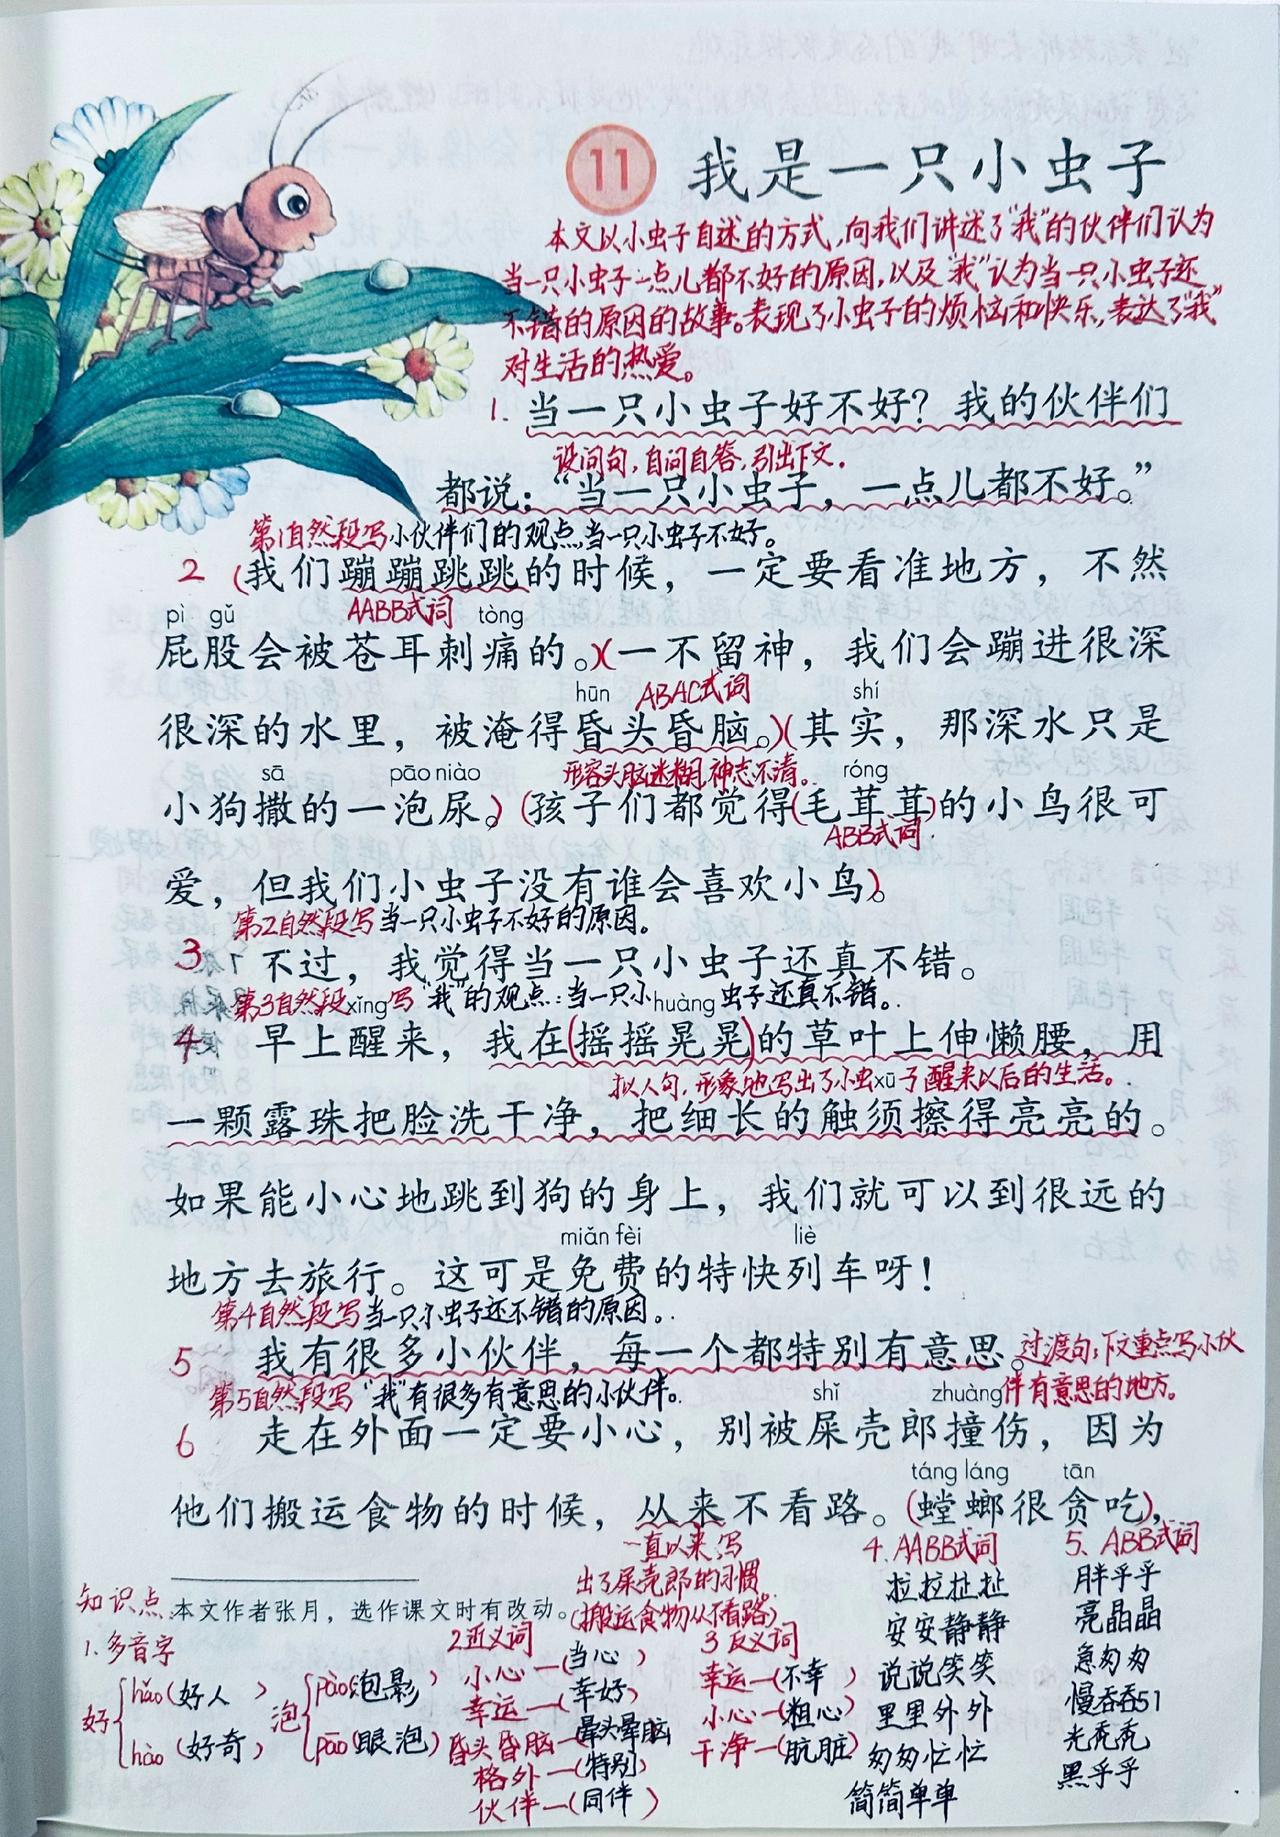 11 我是一只小虫子
本文以小虫子自述的方式,向我们讲述了"我"的伙伴们认为
当一只小虫子一点儿都不好的原因,以及"我"认为当一只小虫子还
不错的原因的故事。表现了小虫子的烦恼和快乐,表达了"我"
对生活的热爱。
1. 当一只小虫子好不好?我的伙伴们
设问句,自问自答,引出下文。
都说:“当一只小虫子,一点儿都不好。”
第1自然段写小伙伴们的观点,当一只小虫子不好。
2 (我们蹦蹦跳跳的时候,一定要看准地方,不然
pì gǔ AABB式词 tòng
屁股会被苍耳刺痛的。)(一不留神,我们会蹦进很深
hūn ABAC式词 shí
很深的水里,被淹得昏头昏脑。)(其实,那深水只是
sā pāo niào 形容头脑迷糊,神志不清。 róng
小狗撒的一泡尿。)(孩子们都觉得(毛茸茸)的小鸟很可
ABB式词.
爱,但我们小虫子没有谁会喜欢小鸟。)
第2自然段写当一只小虫子不好的原因。
3 不过,我觉得当一只小虫子还真不错。
第3自然段写"我"的观点:当一只小虫子还真不错。
xǐng huàng
4 早上醒来,我在(摇摇晃晃)的草叶上伸懒腰,用
拟人句,形象地写出了小虫子醒来以后的生活。
xū
一颗露珠把脸洗干净,把细长的触须擦得亮亮的。
如果能小心地跳到狗的身上,我们就可以到很远的
miǎn fèi liè
地方去旅行。这可是免费的特快列车呀!
第4自然段写当一只小虫子还不错的原因。
5 我有很多小伙伴,每一个都特别有意思。过渡句:下文重点写小伙
伴有意思的地方。
第5自然段写"我"有很多有意思的小伙伴。
shǐ zhuàng
6 走在外面一定要小心,别被屎壳郎撞伤,因为
táng láng tān
他们搬运食物的时候,从来不看路。(螳螂很贪吃),
一直以来,写
出了屎壳郎的习惯
(搬运食物从不看路)
本文作者张月,选作课文时有改动。
知识点:
1.多音字
好 hǎo(好人)
hào(好奇)
泡 pào(泡影)
pāo(眼泡)
2近义词
小心—(当心)
幸运—(幸好)
昏头昏脑—(晕头晕脑)
格外—(特别)
伙伴—(同伴)
3反义词
幸运—(不幸)
小心—(粗心)
干净—(肮脏)
4.AABB式词
拉拉扯扯
安安静静
说说笑笑
里里外外
匆匆忙忙
简简单单
5、ABB式词
胖乎乎
亮晶晶
急匆匆
慢吞吞
光秃秃
黑乎乎
51